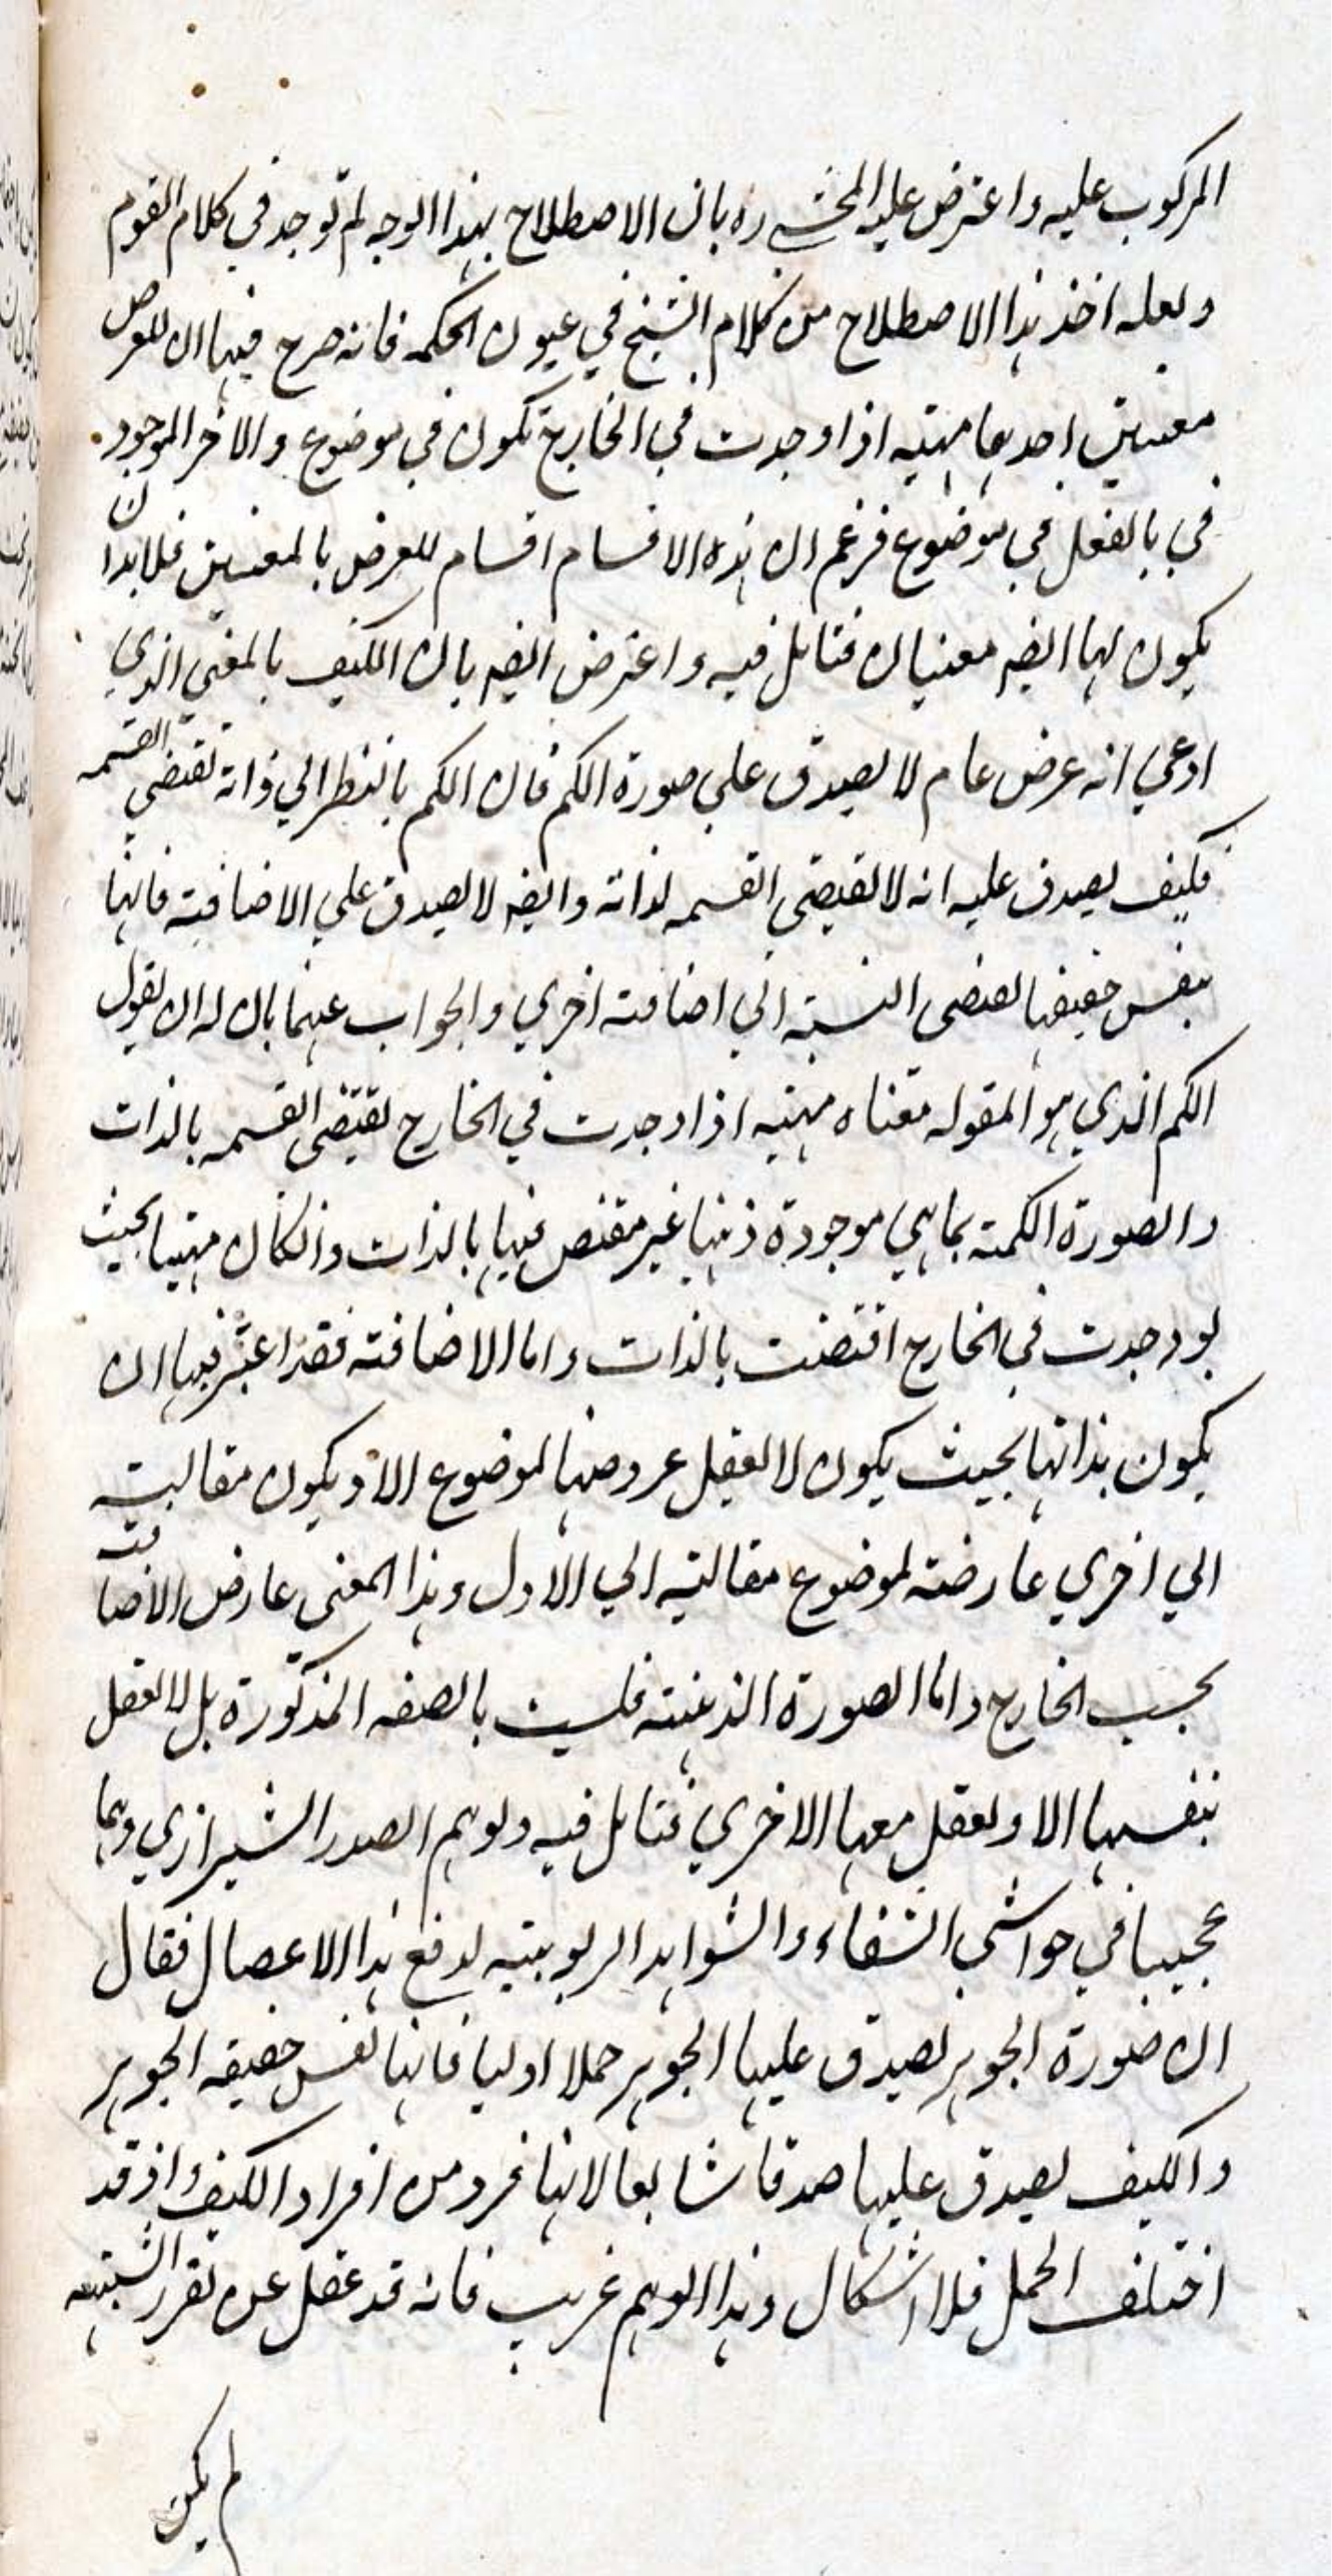 المركوب عليه واعترض عليه المحشے ره بان الاصطلاح بهذا الوجه لم توجد في كلام القوم
ولعله اخذ هذا الاصطلاح من كلام الشيخ في عيون الحكمه فانه صرح فيها ان للعرض
معنيين احدهما مهيته اذا وجدت في الخارج تكون في موضوع والاخر الموجود
في بالفعل في موضوع فزعم ان هذه الاقسام اقسام للعرض بالمعنيين فلابد ان
يكون لها ايضه معنيان فتامل فيه واعترض ايضه بان الكيف بالمعنى الذي
ادعي انه عرض عام لا يصدق علي صورة الكم فان الكم بالنظر الي ذاته تقتضي القسمه
فكيف يصدق عليه انه لا تقتضي القسمه لذاته وايضه لا يصدق علي الاضافيته فانها
بنفس حقيقتها تقتضي النسبته الي اضافته اخري والجواب عنهما بان له ان يقول
الكم الذي هو المقوله معناه مهيته اذا وجدت في الخارج تقتضي القسمه بالذات
والصورة الكميته بما هي موجودة ذهنها غير مقتض فيها بالذات وانكان مهيتها بحيث
لو وجدت في الخارج اقتضت بالذات واما الاضافته فقد اعتبر فيها ان
يكون بذاتها بحيث يكون لا تعقل عروضها لموضوع الا ويكون مقالبته
الي اخري عارضته لموضوع مقالبته الي الاول وهذا المعنى عارض الاضافته
بحسب الخارج واما الصورة الذهنيته فليست بالصفه المذكورة بل لا تعقل
بنفسها الا وتعقل معها الاخري فتامل فيه وتوهم الصدر الشيرازي وهما
عجيبا في حواشي الشفاء والشواهد الربوبيته لدفع هذا الاعضال فقال
ان صورة الجوهر يصدق عليها الجوهر حملا اوليا فانها نفس حقيقه الجوهر
والكيف يصدق عليها صدقا شايعا لانها فرد من افراد الكيف واذ قد
اختلف الحمل فلا اشكال وهذا الوهم غريب فانه قد غفل عن تقرر الشبهه
لم يكن